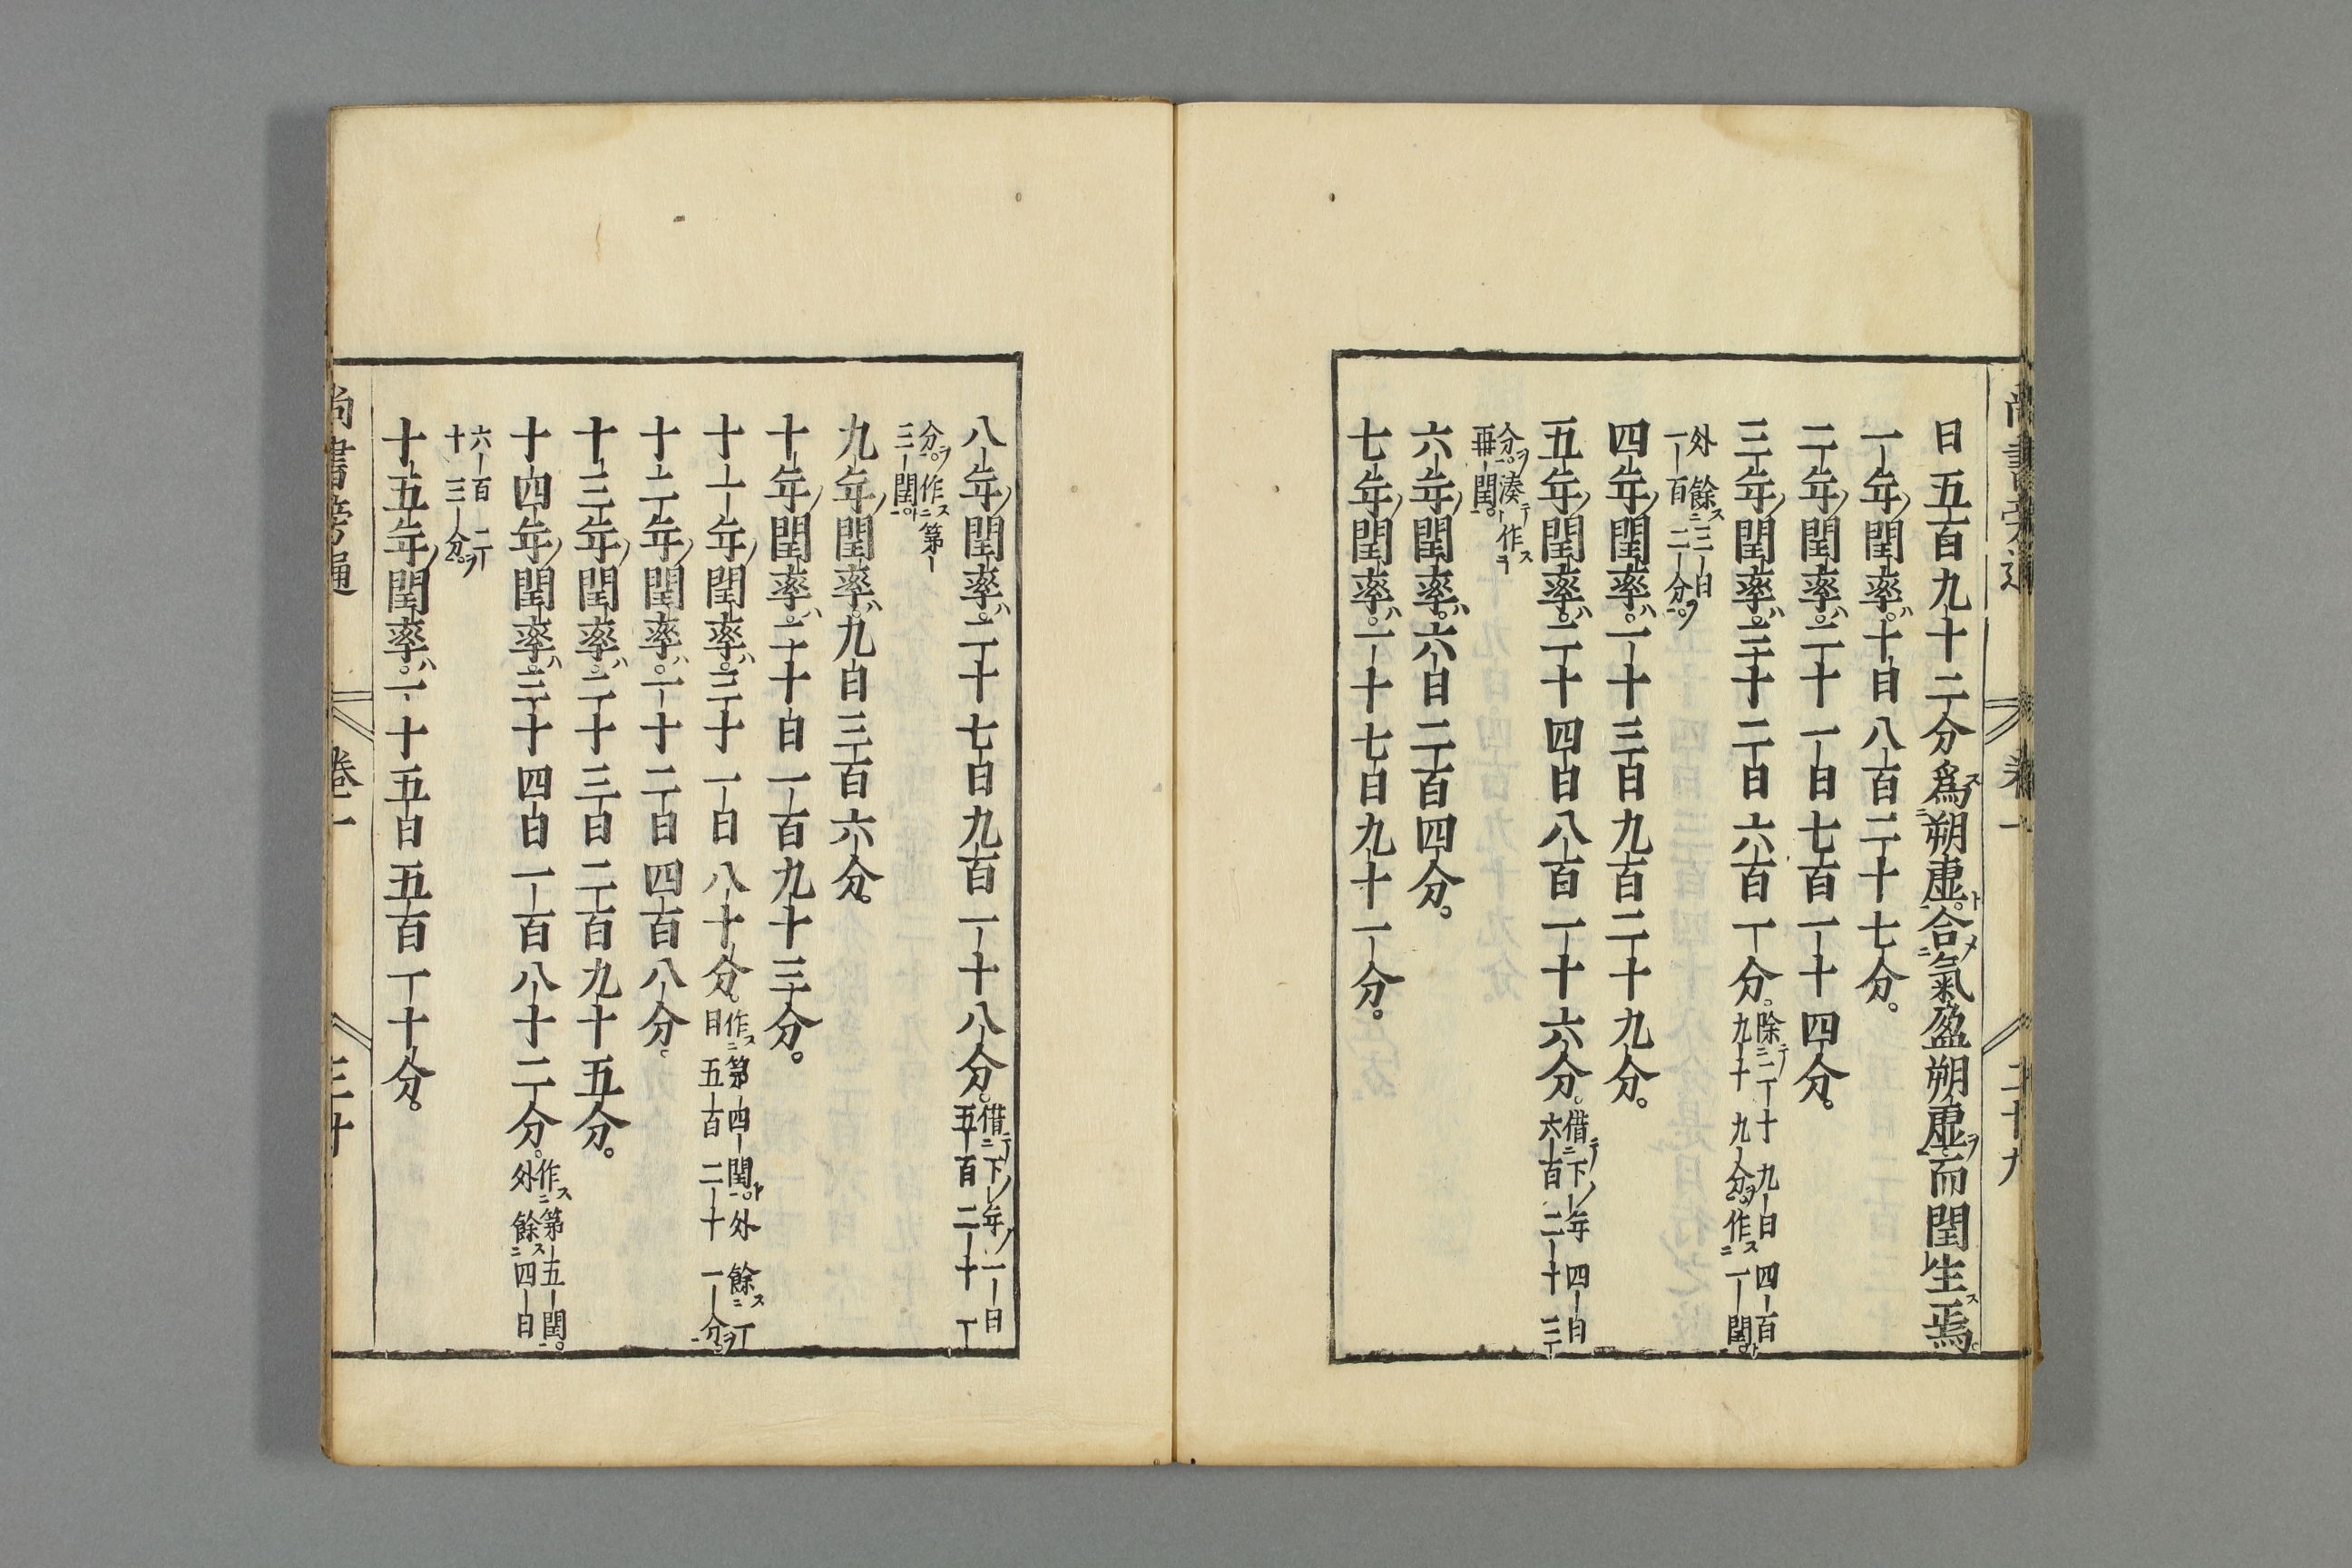 尚書旁通 卷一 二十九
日五百九十二分爲朔虛。合氣盈朔虛而閏生焉。
一年閏率。十日八百二十七分。
二年閏率。二十一日七百一十四分。
三年閏率。三十二日六百一分。除二十九日四百
九十九分作一閏
外餘三日
一百二分。
四年閏率。一十三日九百二十九分。
五年閏率。二十四日八百一十六分。借下年四日
六百二十三
分。湊作
再閏。
六年閏率。六日二百四分。
七年閏率。一十七日九十一分。
八年閏率。二十七日九百一十八分。借下年一日
五百二十一
分。作第
三閏。
九年閏率。九日三百六分。
十年閏率。二十日一百九十三分。
十一年閏率。三十一日八十分。作第四閏。外餘一
日五百二十一分。
十二年閏率。一十二日四百八分。
十三年閏率。二十三日二百九十五分。
十四年閏率。三十四日一百八十二分。作第五閏。
外餘四日
六百二
十三分。
十五年閏率。一十五日五百一十分。
尚書旁通 卷一 三十